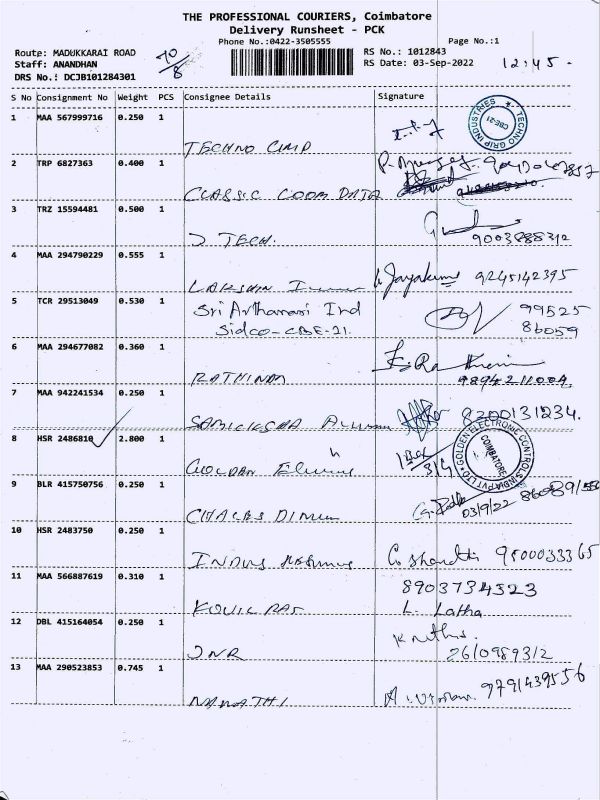 THE PROFESSIONAL COURIERS, Coimbatore
Delivery Runsheet - PCK
Phone No.:0422-3505555
Page No.:1
Route: MADUKKARAI ROAD
RS No.: 1012843
Staff: ANANDHAN
RS Date: 03-Sep-2022
12:45
DRS No.: DCJB101284301
S No Consignment No Weight PCS Consignee Details Signature
1 MAA 567999716 0.250 1
TECHNO GRIP INDUSTRIES CBE-21
TECHNO
2 TRP 6827363 0.400 1
CLASSIC COOM DATA
3 TRZ 15594481 0.500 1
J TECH. 9003888312
4 MAA 294790229 0.555 1
LAKSHMI Jayakumar 9245142395
5 TCR 29513049 0.530 1
Sri Arthanari Ind 99525
Sidco-CBE-21. 86059
6 MAA 294677082 0.360 1
RATHINAM 9894211004
7 MAA 942241534 0.250 1
9200131234.
8 HSR 2486810 2.800 1
GOLDEN ELECTRONIC CONTROLS INDIA PVT LTD COIMBATORE
1 Box
3/9
GOLDAN
9 BLR 415750756 0.250 1
03/9/22
10 HSR 2483750 0.250 1
INDUS 9500033365
11 MAA 566887619 0.310 1
8903734323
KOVIL RAJ L. Latha
12 DBL 415164054 0.250 1
JNR 2610989312
13 MAA 290523853 0.745 1
9791439556